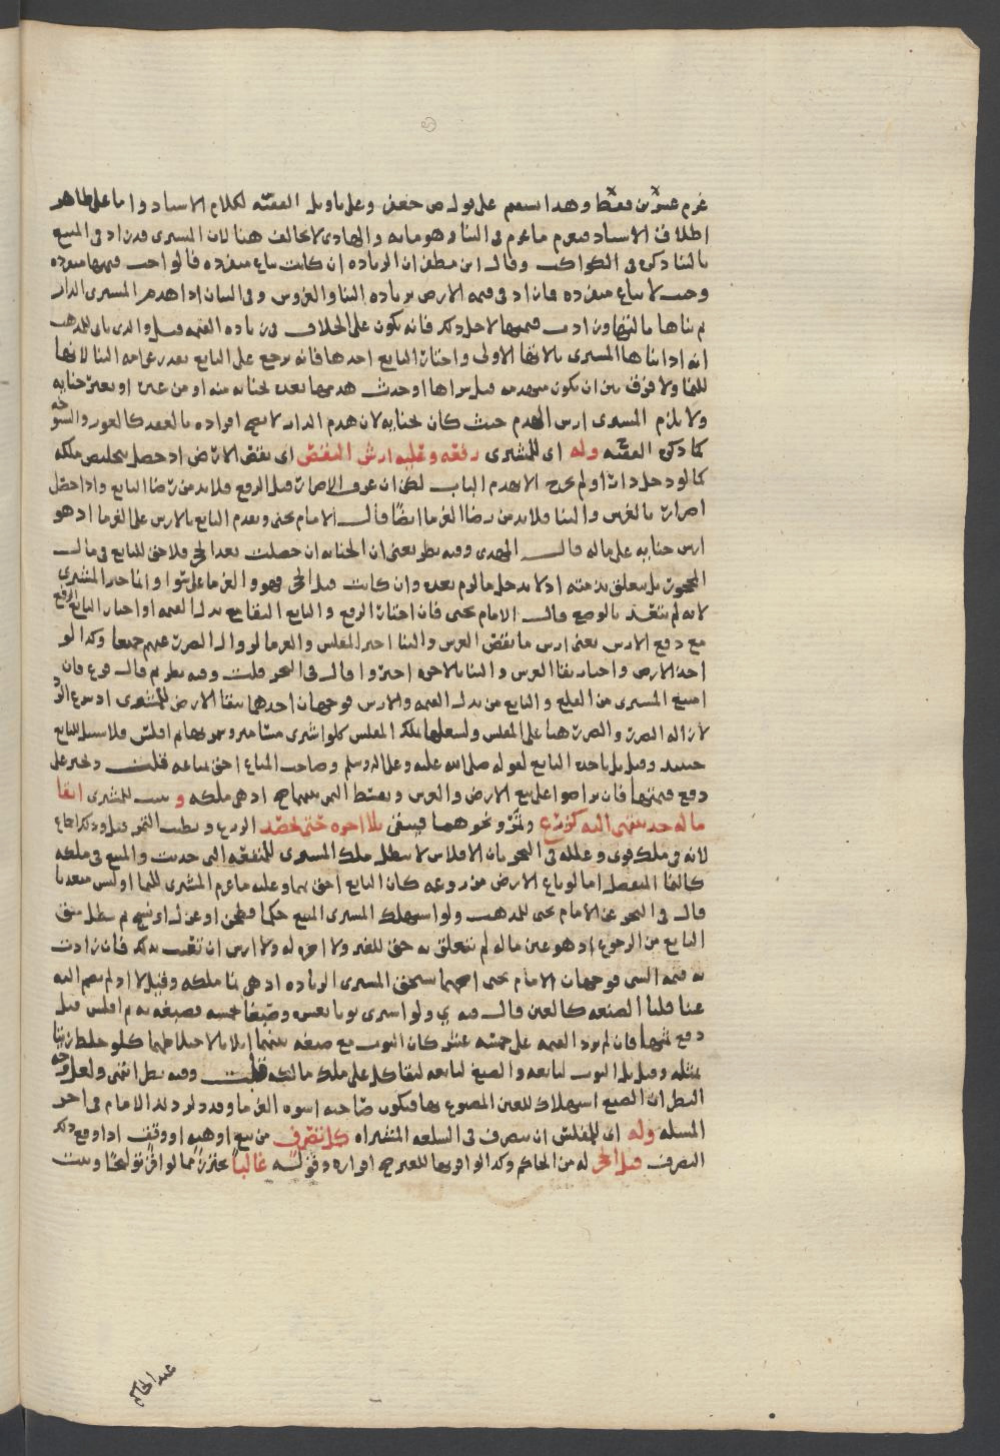 غرم عشرين فقط وهذا يستقيم على قول ص جعفر وعلى تاويل الفقيه لكلام الاستاد واما على ظاهر
اطلاق الاستاد فيغرم ما غرم في البنا وهو مايه والهادي لا يخالف هنا لان المشتري قد زاد في المبيع
بالبنا ذكره في الكواكب وقال ابن مظفر ان الزياده ان كانت تباع منفرده فالواجب قيمتها منفرده
وحيث لا تباع منفرده فان زاد في قيمه الارض بزياده البنا والغروس وفي البيان اذا هدم المشتري الدار
ثم بناها بالتها وزادت قيمتها لاجل ذلك فانه يكون على الخلاف في زياده القيمه قيل والذي ياتي للمذهب
انه اذا بناها المشتري بالاتها الاولى واختار البايع اخذها فانه يرجع على البايع بقدر غرامه البنا لانها
للبقا ولا فرق بين ان يكون منهدمه قبل شراها او حدث هدمها بعده بجنايه منه او من غيره او بغير جنايه
ولا يلزم المشتري ارش الهدم حيث كان بجنايه لان هدم الدار لا يصح افراده بالعقد كالعور والشو
كما ذكره الفقيه وله اي للمشتري رفعه وعليه ارش النقص اي نقص الارض اذ حصل بتخليص ملكه
كما لو دخل دارا ولم يخرج الا بهدم الباب لكن ان عرف الاضرار قبل الرفع فلا بد من رضا البايع واذا حصل
اضرار بالغرس والبنا فلا بد من رضا الغرما ايضا قال الامام يحيى ويقدم البايع بالارش على الغرما اذ هو
ارش جنايه على ماله قال المهدي وفيه نظر يعني ان الجنايه ان حصلت بعد الحجر فلا حق للبايع في مال
المحجور بل يتعلق بذمته اذ لا يدخل ما لزم بعده وان كانت قبل الحجر فهو والغرما على سوا وانما خير المشتري
لانه لم يتعد بالوضع قال الامام يحيى فان اختار الرفع والبايع البقا مع بذل القيمه او اختار البايع الرفع
مع دفع الارش يعني ارش ما نقص الغرس والبنا اجبر المفلس والغرما لزوال الضرر عنهم جميعا وكذا لو
اخذ الارض واختار بقا الغرس والبنا بالاجره اجبروا قال في البحر قلت وفيه نظر ثم قال فرع فان
امتنع المشتري من القلع والبايع من بذل القيمه والارش فوجهان احدهما تبقا الارض للمشتري اذ شرع الرد
لازاله الضرر والضرر هنا على المفلس ولشغلها بملك المفلس كلو اشترى مسامير وسمر بها ثم افلس فلا سبيل للبايع
حينئذ وقيل بل ياخذه البايع لقوله صلى الله عليه وعلى اله وسلم وصاحب المتاع احق بمتاعه قلت ويخير على
دفع قيمتها فان تراضوا على بيع الارض والغرس ويقسط الثمن بينهما صح اذ هي ملكه و يثبت للمشتري ابقا
ماله حد ينتهي اليه كزرع وثمر ونحوهما فيبقى بلا اجره حتى يحصد الزرع ويطيب الثمر قيل وذلك اجماع
لانه في ملك قوي وعلله في البحر بان الافلاس لا يبطل ملك المشتري للمنفعه التي حدثت والمبيع في ملكه
كالنما المنفصل اما لو باع الارض مزروعه كان البايع احق بهما وعليه ما غرم المشتري للنما او ليس متعديا
قال في البحر عن الامام يحيى للمذهب ولو استهلك المشتري المبيع حكما فطحن او غزل او نسج لم يبطل حق
البايع من الرجوع اذ هو عين ماله لم يتعلق به حق للغير ولا اجره له ولا ارش ان تعيب بذلك فان زادت
به قيمه الشي فوجهان الامام يحيى اصحهما يستحق المشتري الزياده اذ هي نما ملكه وقيل لا اذ لم يضم اليه
عينا قلنا الصنعه كالعين قال فيه ي ولو اشترى ثوبا بعشره وصبغا بخمسه فصبغه به ثم افلس قبل
دفع ثمنها فان لم يزد القيمه على خمسه عشر كان الثوب مع صبغه بينهما اثلاثا لاختلاطهما كلو خلط زيتا
بمثله وقيل بل الثوب لبايعه والصبغ لبايعه لبقا كل على ملك مالكه قلت وفيه نظر انتهى ولعل وجه
النظر ان الصبغ استهلاك للعين المصبوغ بها فيكون صاحبه اسوه الغرما وقد ذكر ذلك الامام في اخر
المسله وله اي للمفلس ان يتصرف في السلعه المشتراه كل تصرف من بيع او هبه او وقف اذا وقع ذلك
التصرف قبل الحجر له من الحاكم وكذا لو اقر بها للغير صح اقراره وقوله غالبا يحترز مما لو اقر توليجا ويثبت
عبد الحاكم